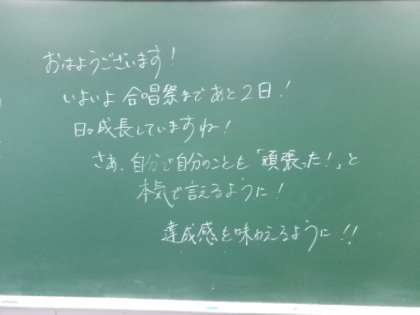 おはようございます!
いよいよ合唱祭まであと2日!
日々成長していますね!
さあ、自分で自分のことを「頑張った!」と
本気で言えるように!
達成感を味わえるように!!